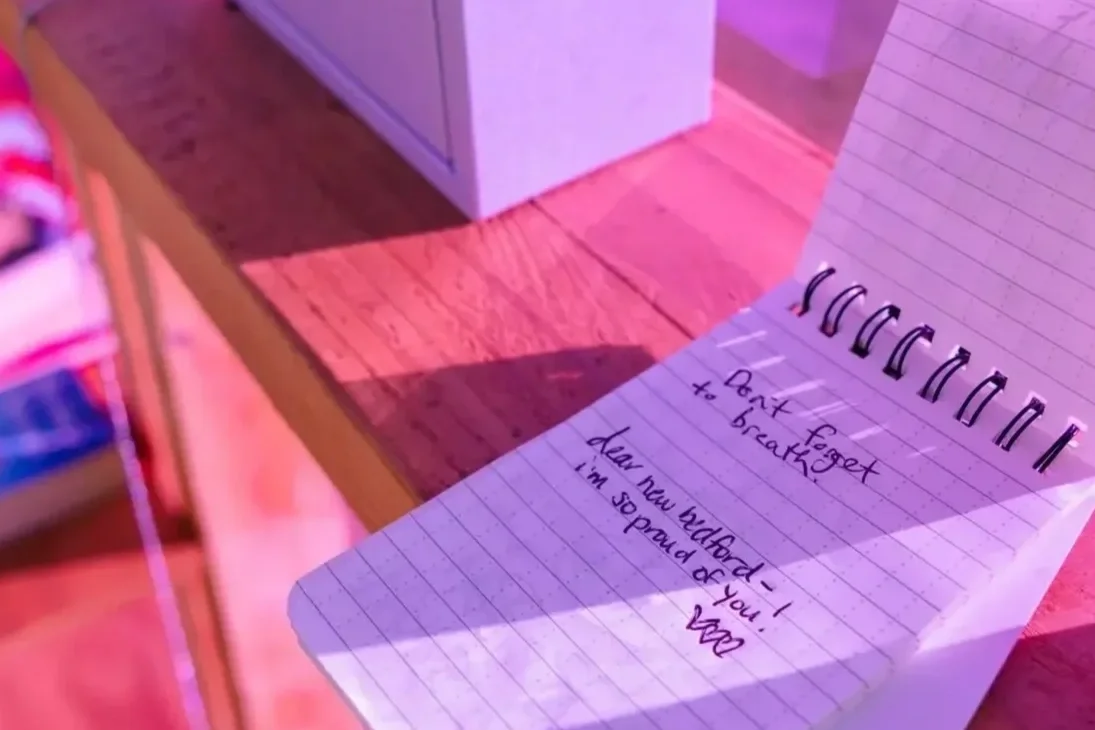 Don't forget
to breath.
dear new bedford-
i'm so proud of you!